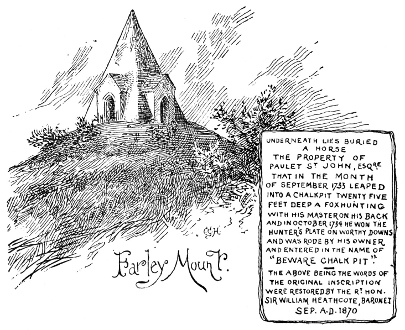 UNDERNEATH LIES BURIED
A HORSE
THE PROPERTY OF
PAULET ST JOHN, ESQRE
THAT IN THE MONTH
OF SEPTEMBER 1733 LEAPED
INTO A CHALKPIT TWENTY FIVE
FEET DEEP A FOXHUNTING
WITH HIS MASTER ON HIS BACK
AND IN OCTOBER 1734 HE WON THE
HUNTER'S PLATE ON WORTHY DOWNS
AND WAS RODE BY HIS OWNER
AND ENTERED IN THE NAME OF
"BEWARE CHALK PIT".
THE ABOVE BEING THE WORDS OF
THE ORIGINAL INSCRIPTION
WERE RESTORED BY THE RT. HON.
SIR WILLIAM HEATHCOTE, BARONET
SEP. A.D. 1870
Farley Mount.